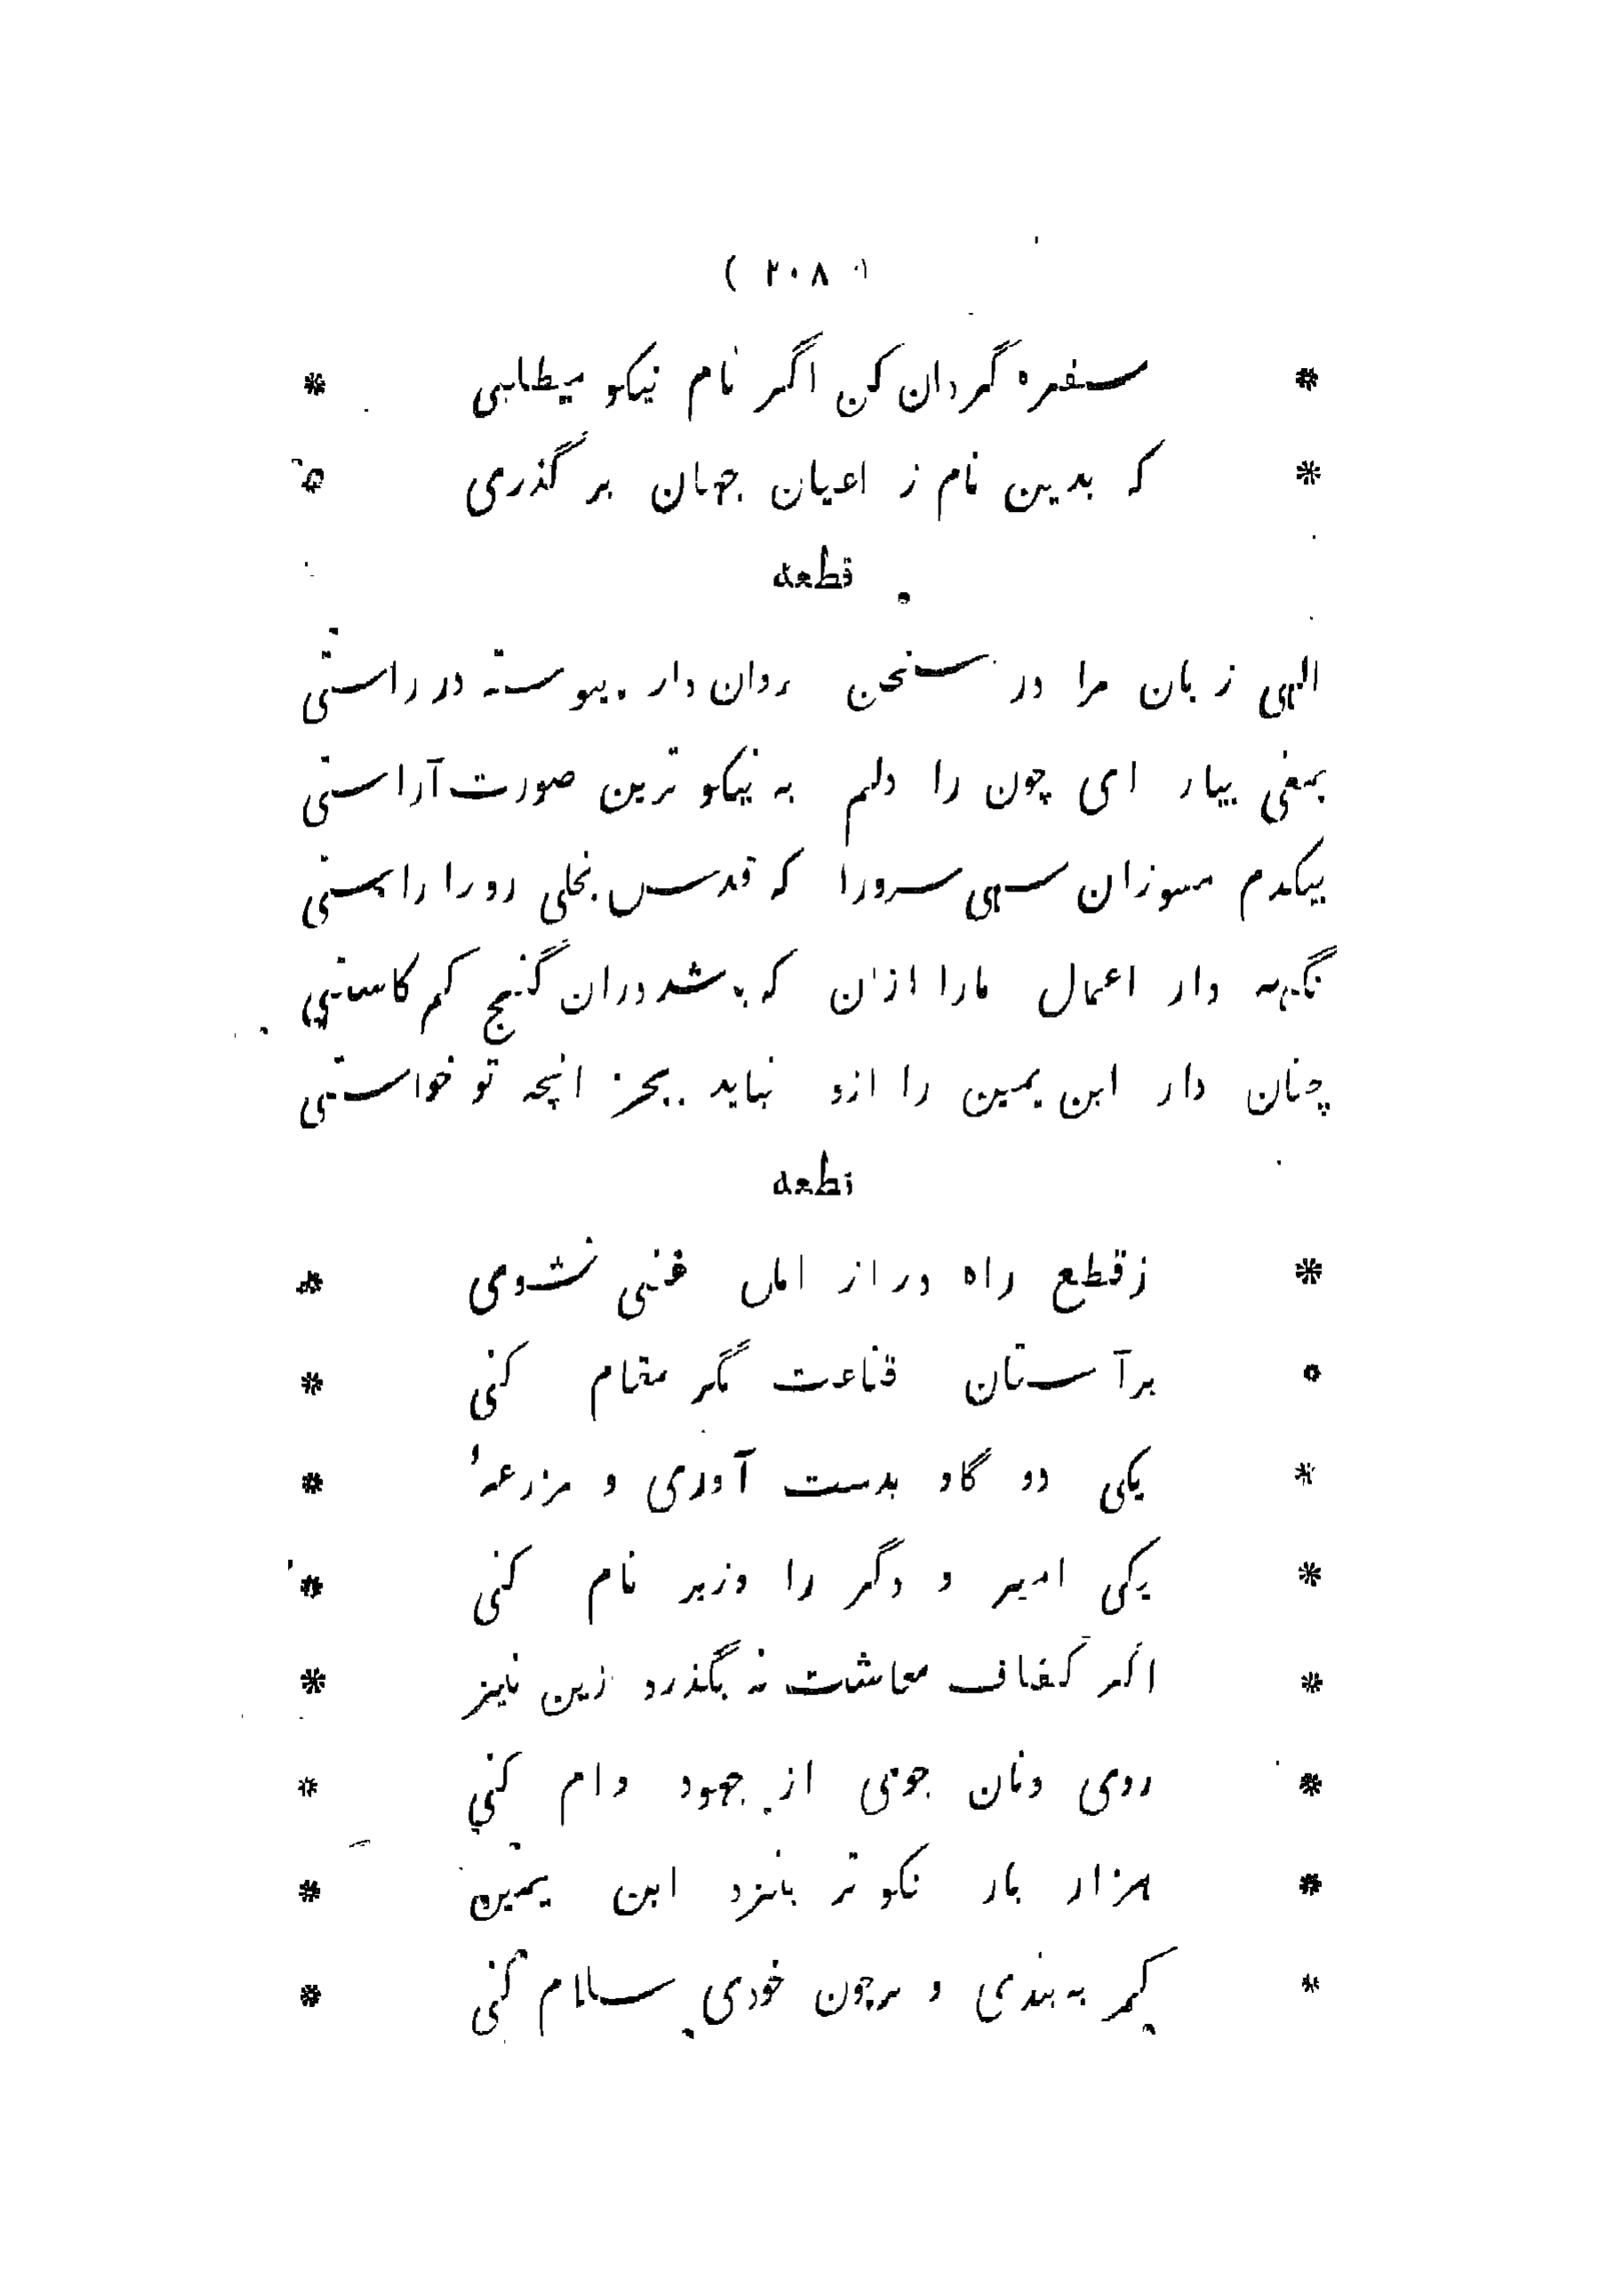 ( ۲۰۸ )
* سفره گردان کن اگر نام نیکو میطلبی *
* که بدین نام ز اعیان جهان بر گذری *
قطعه
الهی زبان مرا در سخن روان دار پیوسته در راستی
بمعنی بیار ای چون را دلم به نیکو ترین صورت آراستی
بیکدم مسوزان سهی سرورا که قدس تجلی رورا را
نگهه دار اعمال مارا ازان که باشد دران گنج کم کاستی
چنان دار ابن یمین را ازو نیاید بجز انچه تو خواستی
قطعه
* زقطع راه دراز امل غنی نشوی *
* برآستان قناعت مگر مقام کنی *
* یکی دو گاو بدست آوری و مزرعهٔ *
* یکی امیر و دگر را وزیر نام کنی *
* اگر کفاف معاشت نه بگذرد زین نیز *
* روی ونان جوی از جهود وام کنی *
* هزار بار نکو تر بنزد ابن یمین *
* کمر به بندی و برچون خودی سلام کنی *